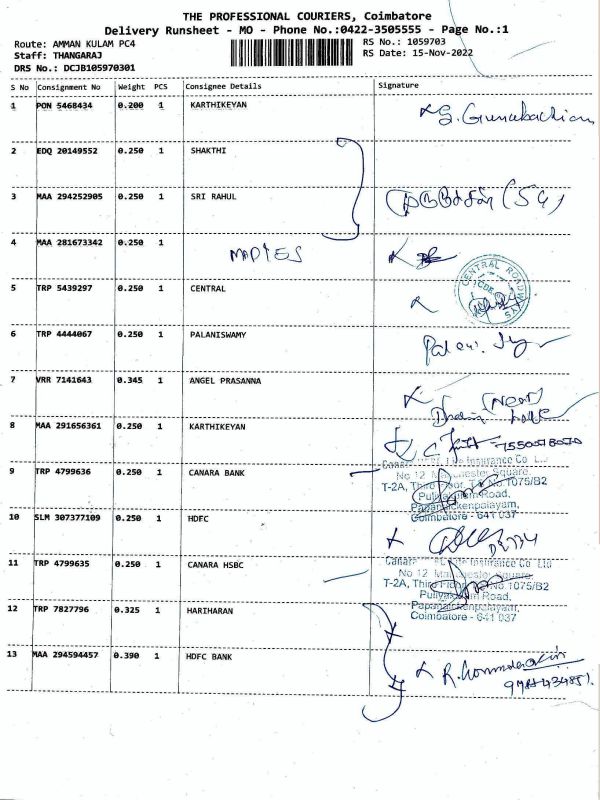 THE PROFESSIONAL COURIERS, Coimbatore
Delivery Runsheet - MO - Phone No.:0422-3505555 - Page No.:1
Route: AMMAN KULAM PC4
Staff: THANGARAJ
DRS No.: DCJB105970301
RS No.: 1059703
RS Date: 15-Nov-2022
S No Consignment No Weight PCS Consignee Details Signature
1 PON 5468434 0.200 1 KARTHIKEYAN
2 EDQ 20149552 0.250 1 SHAKTHI
3 MAA 294252905 0.250 1 SRI RAHUL
4 MAA 281673342 0.250 1
5 TRP 5439297 0.250 1 CENTRAL
CENTRAL ROADWAYS
6 TRP 4444067 0.250 1 PALANISWAMY
7 VRR 7141643 0.345 1 ANGEL PRASANNA
(Near)
8 MAA 291656361 0.250 1 KARTHIKEYAN
9 TRP 4799636 0.250 1 CANARA BANK
Life Insurance Co Ltd
No 12 Manchester Square
T-2A, Third Floor, T.S No.1075/B2
Puliyakulam Road,
Papanaickenpalayam,
Coimbatore - 641 037
10 SLM 307377109 0.250 1 HDFC
11 TRP 4799635 0.250 1 CANARA HSBC
Life Insurance Co Ltd
No 12 Manchester Square
T-2A, Third Floor, T.S No.1075/B2
Puliyakulam Road,
Papanaickenpalayam,
Coimbatore - 641 037
12 TRP 7827796 0.325 1 HARIHARAN
13 MAA 294594457 0.390 1 HDFC BANK